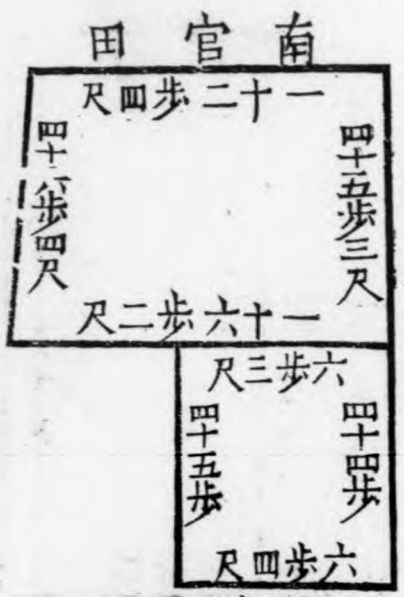 南官田
一十二步四尺
四十五步三尺
四十六步四尺
一十六步二尺
六步三尺
四十四步
四十五步
六步四尺